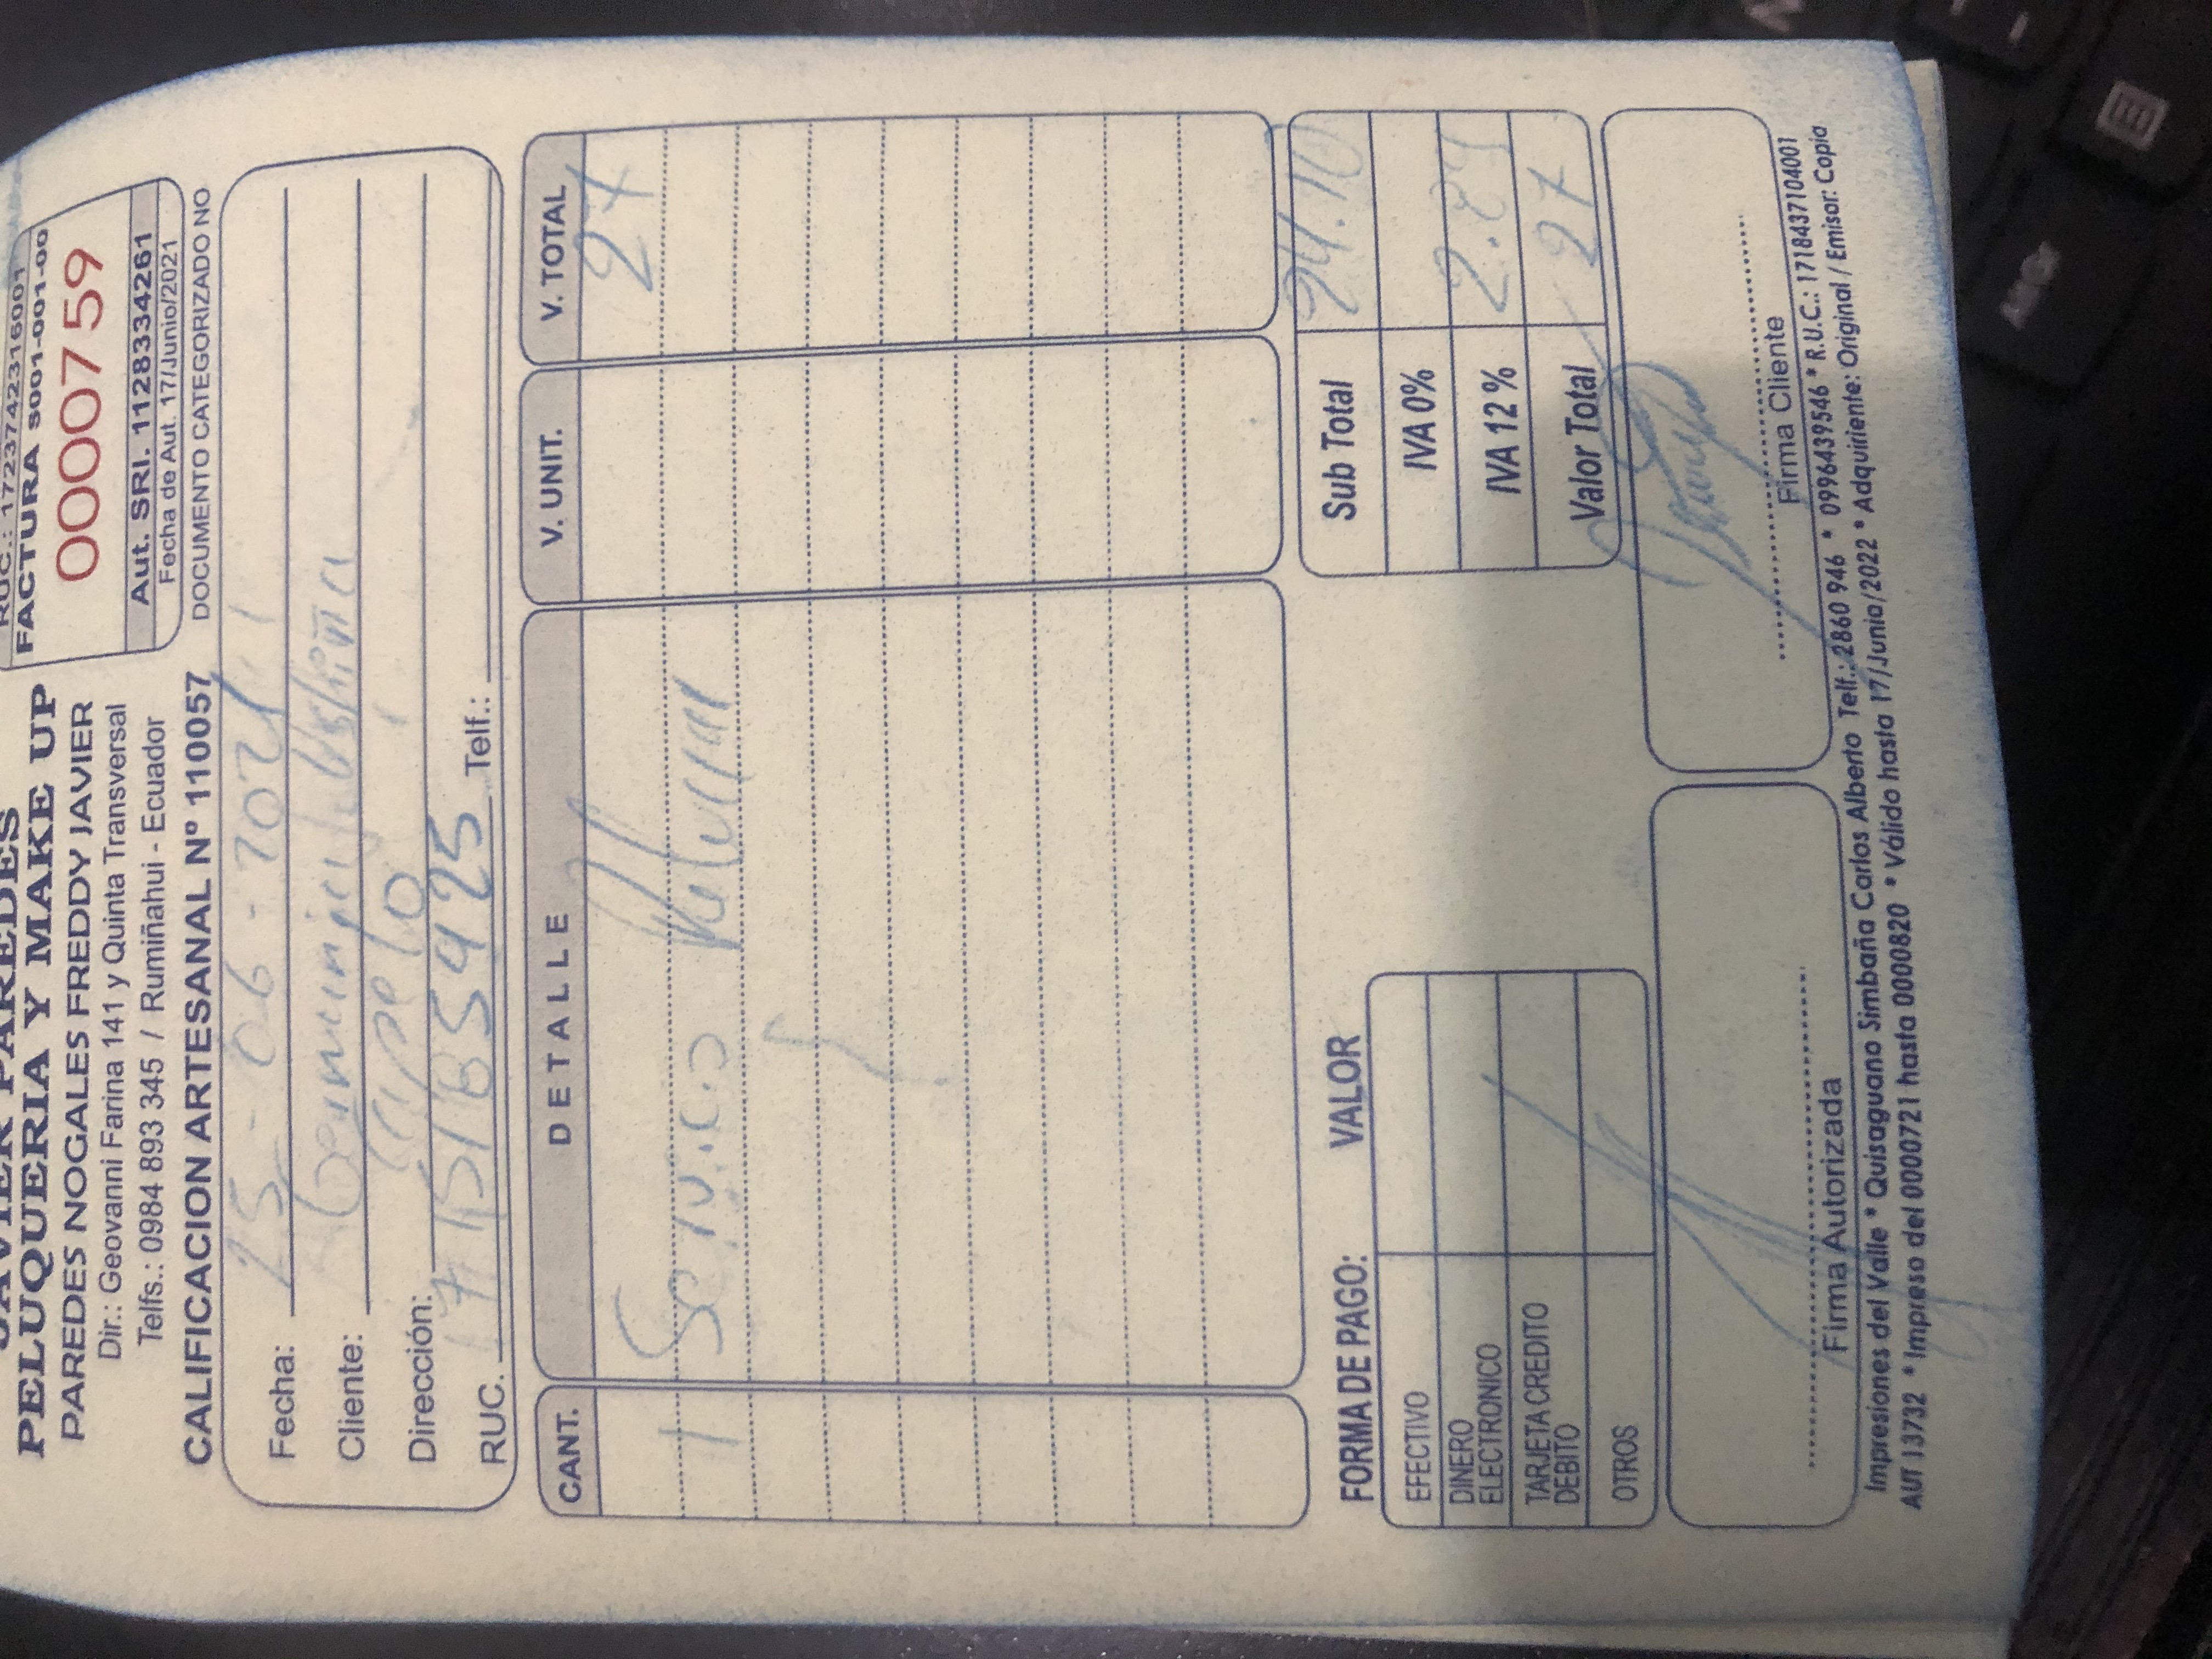 JAVIER PAREDES
PELUQUERIA Y MAKE UP
PAREDES NOGALES FREDDY JAVIER
Dir.: Geovanni Farina 141 y Quinta Transversal
Telfs.: 0984 893 345 / Rumiñahui - Ecuador
CALIFICACION ARTESANAL Nº 110057
RUC.: 1723742316001
FACTURA S001-001-00
0000759
Aut. SRI. 1128334261
Fecha de Aut. 17/Junio/2021
DOCUMENTO CATEGORIZADO NO
Fecha: 25-06-2021
Cliente:
Dirección:
RUC. 1715165925 Telf.:
CANT. DETALLE V. UNIT. V. TOTAL
27
1 Servicio
Sub Total 24.10
IVA 0%
IVA 12 % 2.89
Valor Total 27
FORMA DE PAGO: VALOR
EFECTIVO
DINERO
ELECTRONICO
TARJETA CREDITO
DEBITO
OTROS
Firma Autorizada
Firma Cliente
Impresiones del Valle * Quisaguano Simbaña Carlos Alberto Telf.: 2860 946 * 0996439546 * R.U.C.: 1718437104001
AUT 13732 * Impreso del 0000721 hasta 0000820 * Válido hasta 17/Junio/2022 * Adquiriente: Original / Emisor: Copia